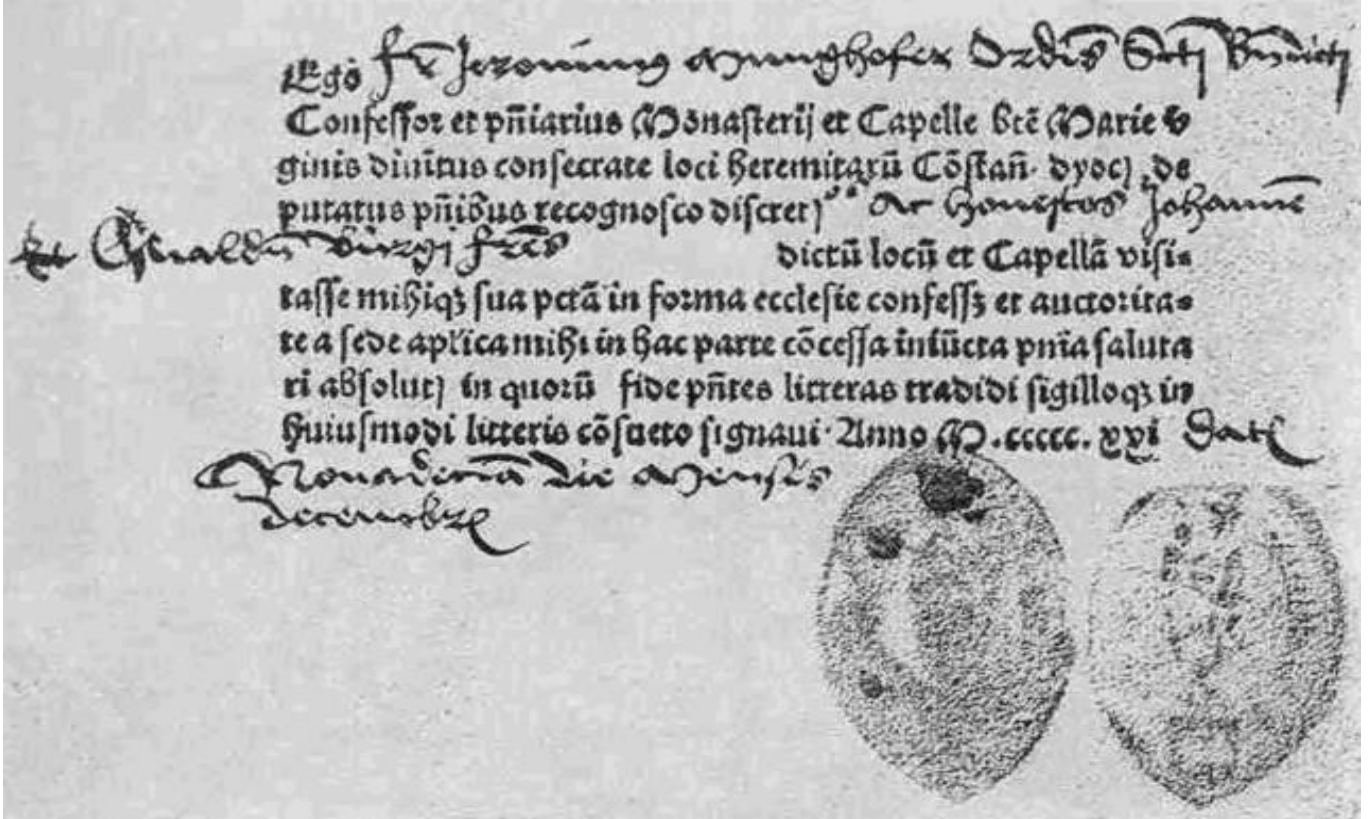 Ego fr̄ Jeronimus Munghofer Ordīs Sctī Bn̄dicti
Confessor et pn̄iarius Monasterij et Capelle btē Marie v
ginis diuinitus consecrate loci heremitarū Cōstan̄. dyocꝫ, de
putatus pn̄ibus recognosco discretꝫ os Ac honestos Johannē
Et Osualdū Burgi frēs dictū locū et Capellā visi⸗
tasse mihiqꝫ sua pctā in forma ecclesie confessꝫ et auctorita⸗
te a sede apľica mihi in hac parte cōcessa iniūcta pn̄ia saluta
ri absolutꝫ in quorū fide pn̄tes litteras tradidi sigilloqꝫ in
huiusmodi litteris cōsueto signaui. Anno M.ccccc.xxi Datꝫ
Nonadecīa die Mensis
decembrꝫ